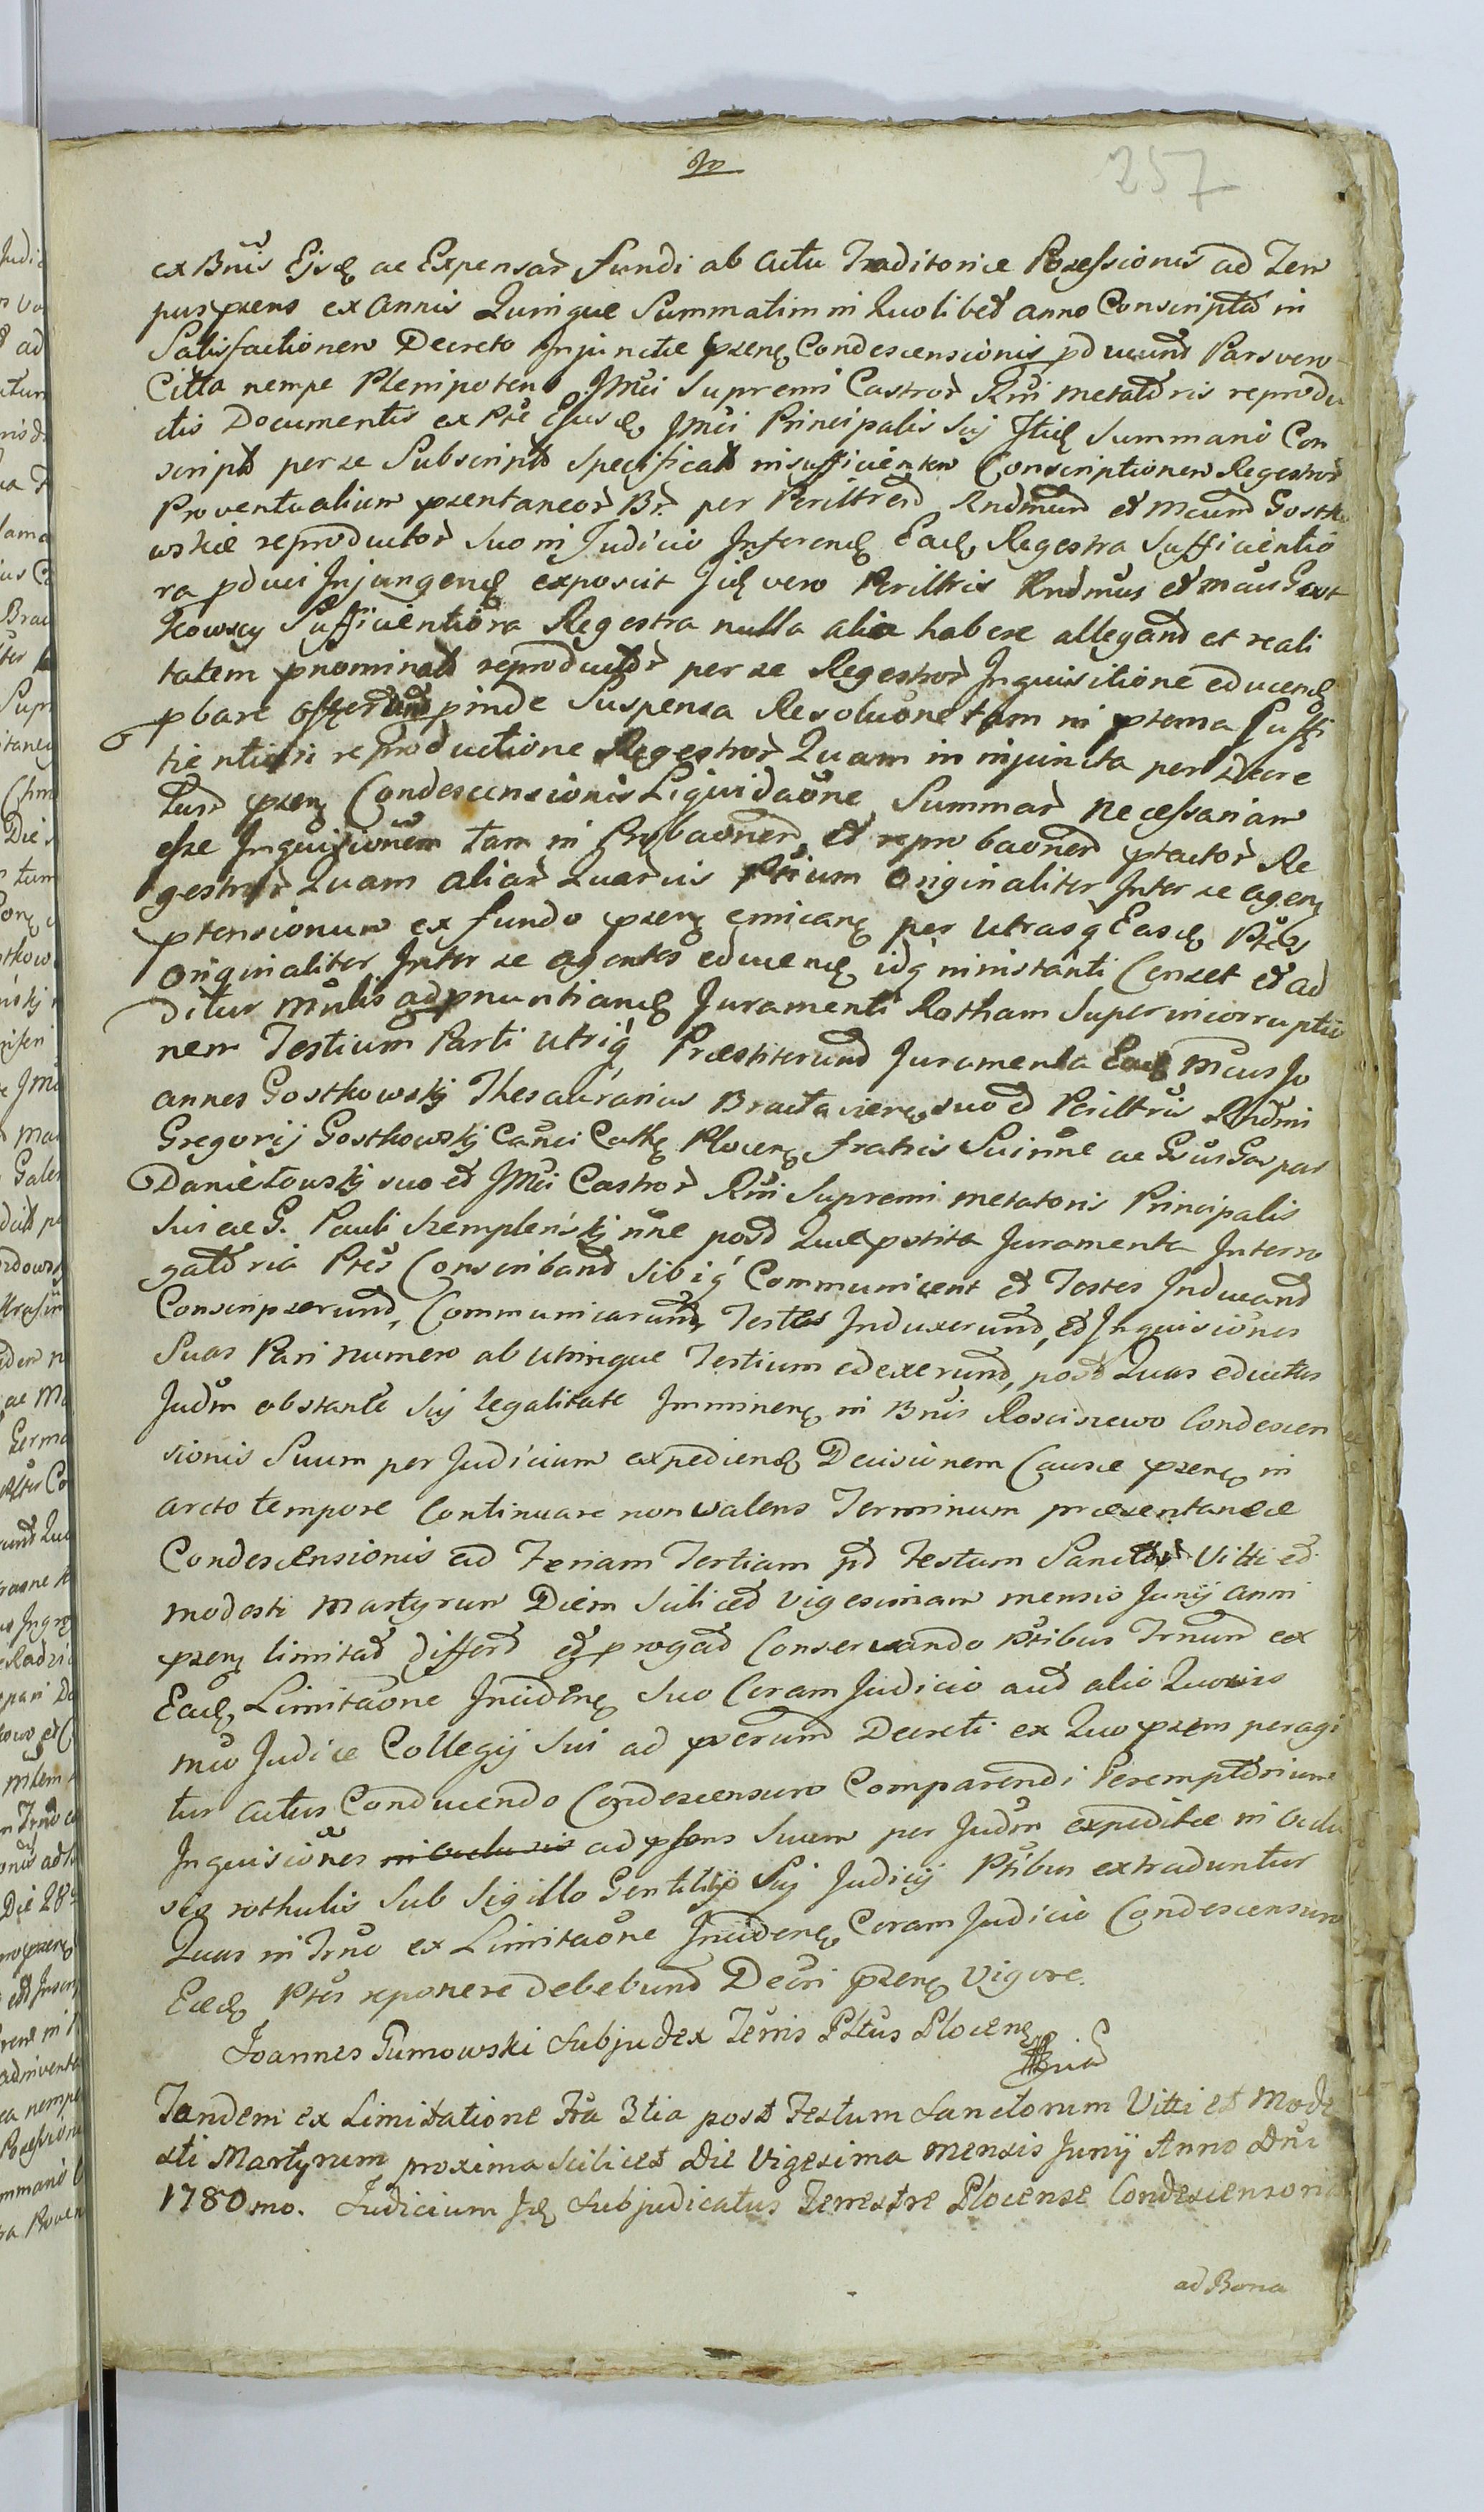 257
ex Bnis Ejsd ac Expensar fundi ab Actu Traditoriæ Possessionis ad Tem
pus pzens ex Annis Quinque Summatim in Quolibet anno Conscripta in
Satisfactionem Decreto Injunctæ pzenę Condescensionis pducunt Pars vero
Citta nempe Plenipotens Jmci Supremi Castror Rni metatoris reprodu
ctis Documentis ex Pte Ejusd Jmci Principalis Sij Itid Summario Con
script per se Subscript Specificat insufficientem Conscriptionem Regestror
Proventualium pzentaneor Br. per Perilltrem Rndmum et Mcum Gostko
wskie reproductor Suo in Judicio Inferend Ead Regestra Sufficientio
ra pduci Injungend exposcit Jid vero Perilltris Rndmus et Mcus Gost
kowscy Sufficientiora Regestra nulla alia habere allegand et reali
tatem pnominat reproductor per se Regestror Inquisitione educend
pbare offerund pinde Suspensa Resolucione tam in ptensa Suffi
tientiori reproductione Regestror Quam in injuncta per Decre
tum pzenę Condescensionis Liquidaone Summar necessariam
esse Inquisicionem tam in Probaonem et reprobaonem ptactor Re
gestror Quam aliar Quarvis Ptium Originaliter Inter se agenę
ptensionum ex fundo pzenę emicanę per Utrasq Easd Ptes
Originaliter Inter se agentes educend idq ininstanti Censet et ad
ditur Mnlis ad pnuntiand Juramenti Rotham Super incorruptio
nem Testium Parti Utriq, Præstiterunt Juramenta Ead Mcus Jo
annes Gostkowskij Thesaurarius Bractavienę suo et Perilltris Rndmi
Gregorij Gostkowskij Canci Cathę Plocenę fratris Sui nne ac Gsus Gaspar
Daniełowskij suo et Jmci Castror Rni Supremi metatoris Principalis
Sui ac G. Pauli Szempleńskij nne post Quæ pstita Juramenta Interro
gatoria Ptes Conscribant Sibiq Communicent et Testes Inducant
Conscripserunt, Communicarunt, Testes Induxerunt, et Inquisiciones
Suas Pari numero ab Utrinque Testium eduxerunt, post Quas eductas
Judm obstante Sij legalitate Imminenę in Bnis Rosciszewo Condescen
sionis Suum per Judicium expediend Decisionem Causæ pzenę in
arcto tempore Continuare non valens Terminum præzentaneæ
Condescensionis ad Feriam Tertiam pst Festum Sanctor Vitti et
modesti Martyrum Diem Scilicet vigesimam mensis Junij anni
pzenę limitat differt et progat Conservando Ptibus Trnum ex
Ead Limitaone Incidenę Suo Coram Judicio aut alio Quovis
mco Judice Collegij Sui ad pzerum Decreti ex Quo pzens peragi
tur actus Conducendo Condescensuro Comparendi Peremptorium
Inquisiciones in clusis ad pzens Suum per Judm expeditæ in clu
sis rothulis Sub Sigillo Gentilitijo Sij Judicij Ptibus extraduntur
Quas in Trno ex Limitaone Incidenę Coram Judicio Condescensuro
Eæd Ptes reponere debebunt Decri pzenę Vigore.
Joannes Gumowski Subjudex Terris Pltus Plocenę
Tandem ex Limitatione Fria 3tia post Festum Sanctorum Vitti et Mode
sti Martyrum proxima Scilicet Die Vigesima mensis Junij Anno Dni
1780mo. Judicium Jd Subjudicatus Terrestre Plocense Condescensoria
ad Bona